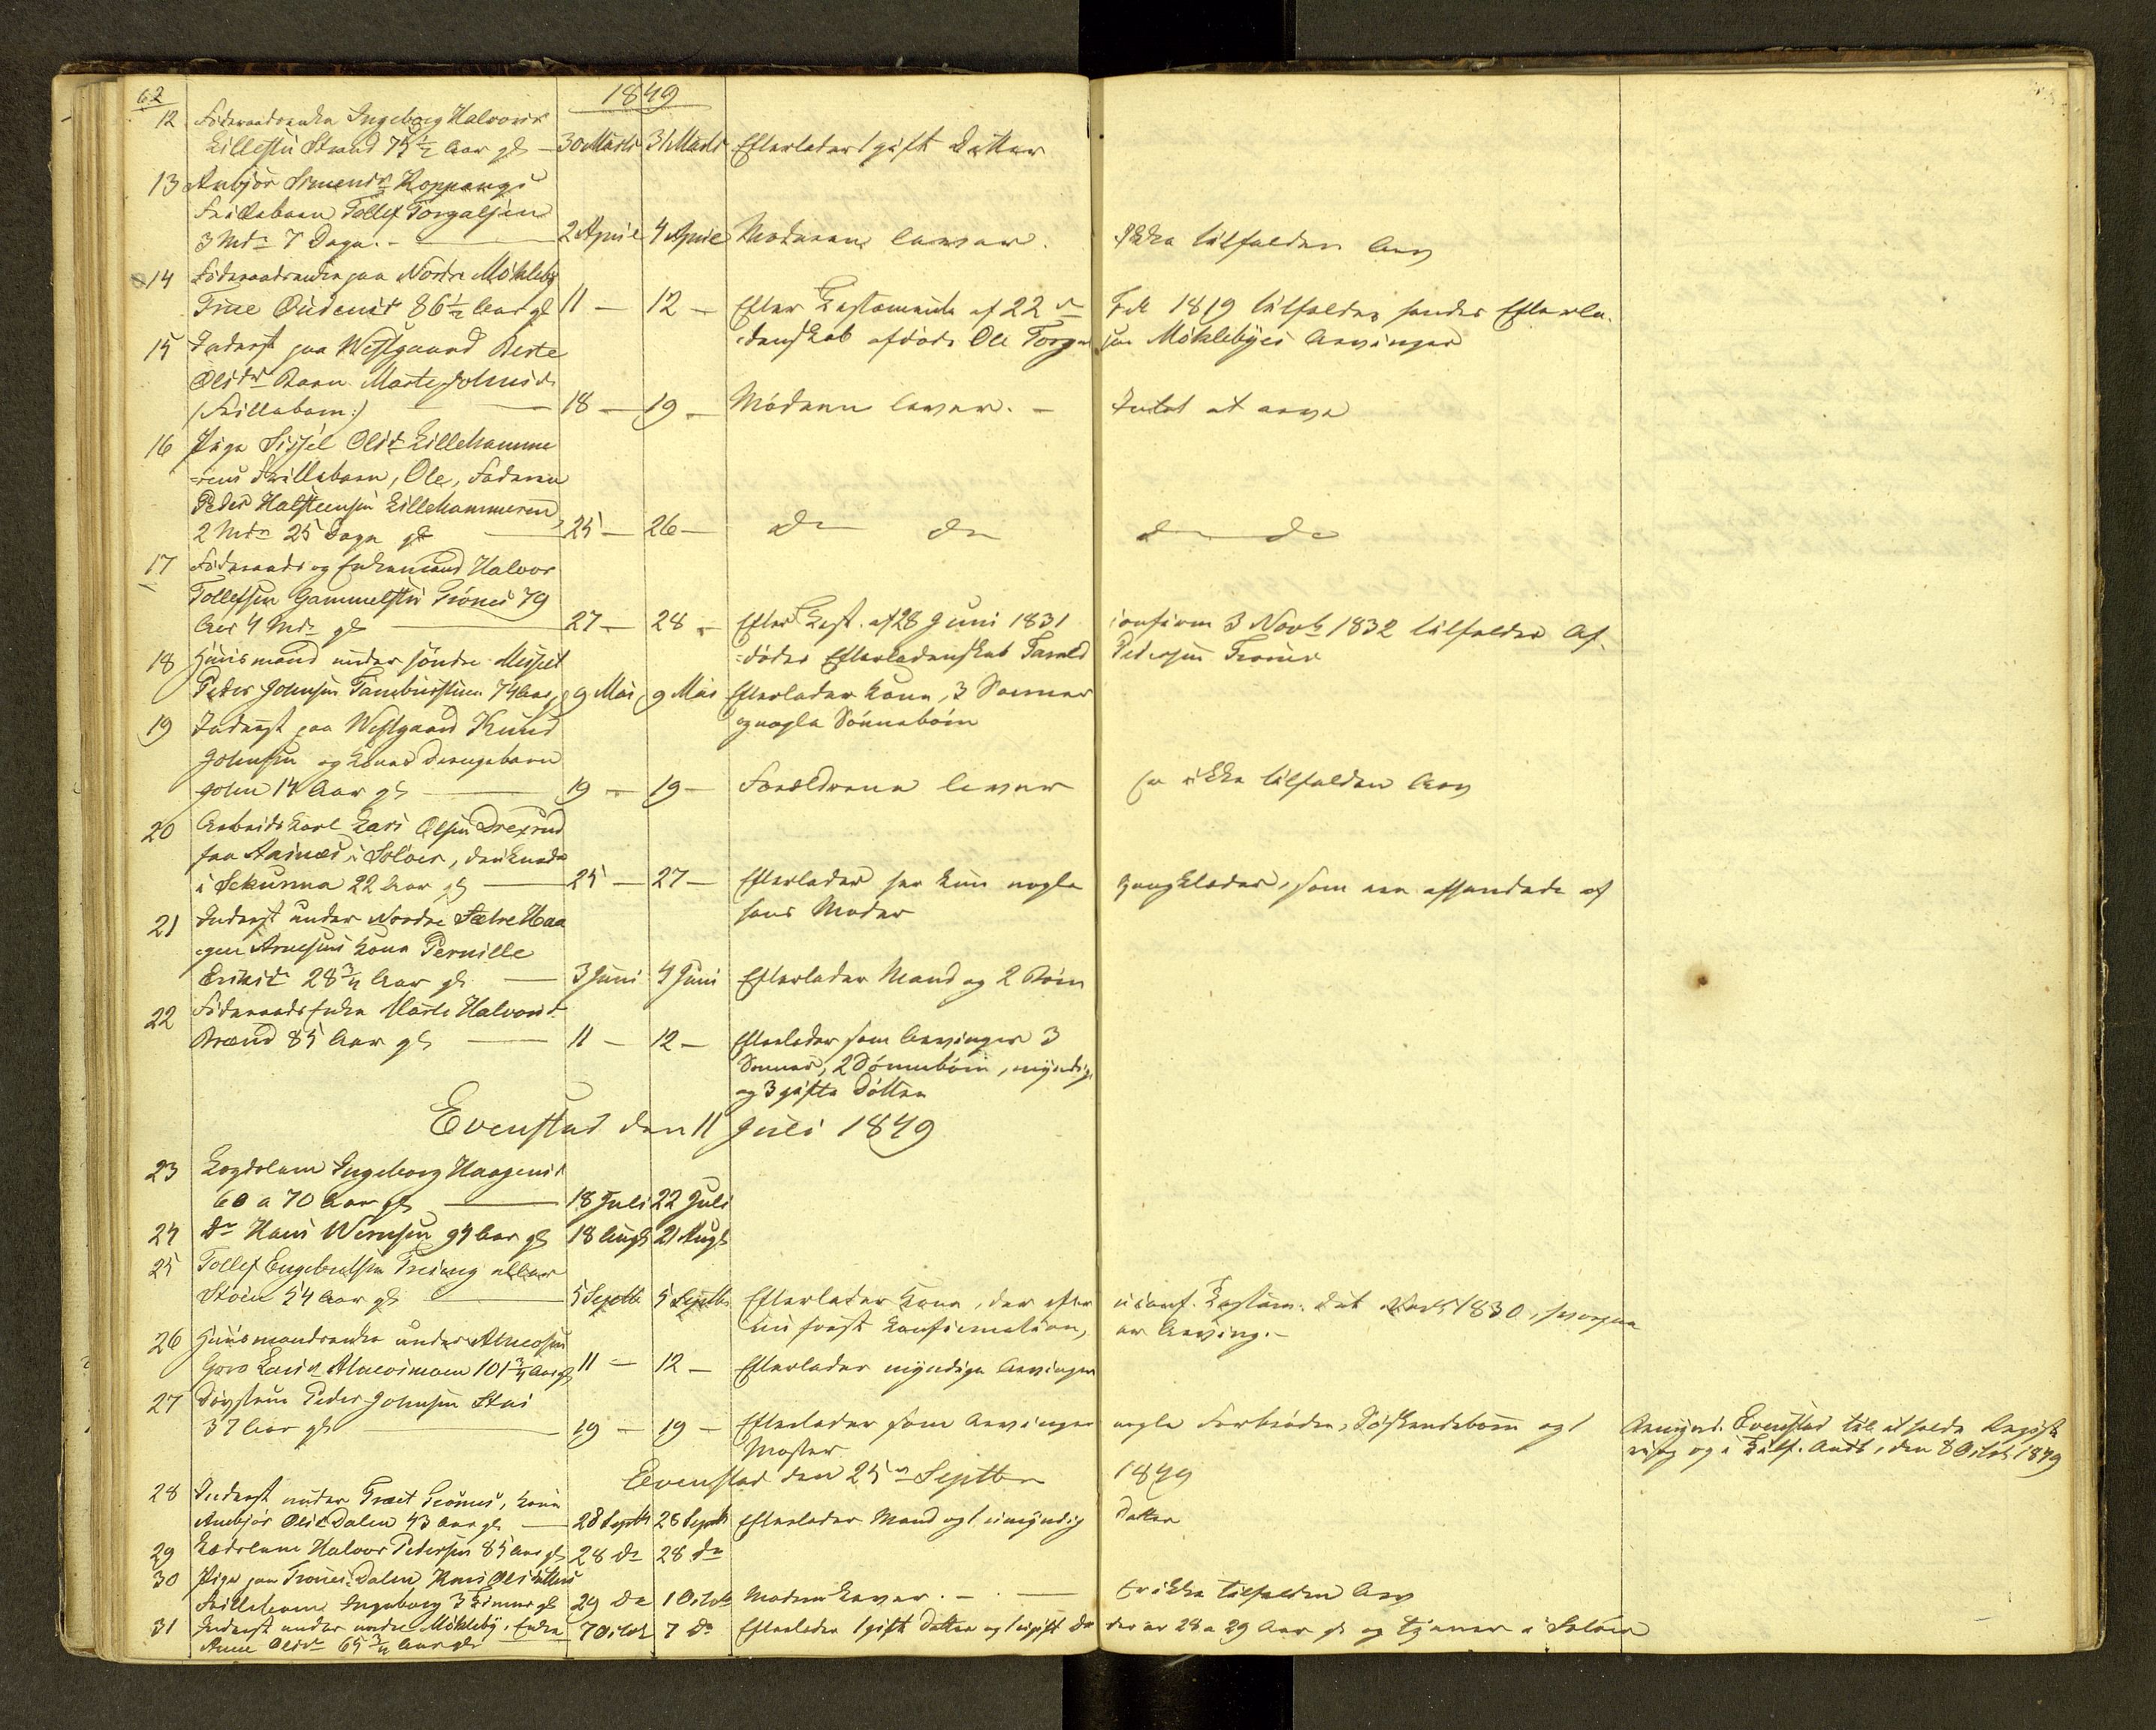 62
1849
12 Föderaadsenke Ingeborg Halvorsd
Lillestu Strand 75 1/2 Aar gl - 30 Marts 31 Marts Efterlader 1 gift Datter
13 Anbjör Simensd Koppangs
Frillebarn Tollef Torgalsen
3 Mdr 7 Dage. - 2 April 4 April Moderen lever. Ikke tilfalden Arv
14 Föderaadsenke paa Nordre Möklebÿ
Trine Oudensd 86 1/2 Aar gl 11 - 12 - Efter Testamente af 22 Feb 1819 tilfalder hendes Efterla-
denskab afdöde Ole Torgersen Möklebÿes Arvinger
15 Inderst paa Westgaard Berte
Olisdr Barn Marte Johnsd
(Frillebarn:) 18 - 19 - Moderen lever. - Intet at arve
16 Pige Sissel Olsd Lillehamme
rens Frillebarn, Ole, Faderen
Peder Halsteensen Lillehammeren,
2 Mdr 25 Dage gl 25 - 26 - do do do do
17 Föderaads og Enkemand Halvor
Tollefsen Gammelstu Trönes 79
Aar 4 Mdr gl 27 - 28 - Efter Test. af 28 Juni 1831 confirm 3 Novb 1832 tilfalder Af-
dödes Efterladenskab Tarald Pedersen Trönes
18 Huusmand under söndre Messelt
Peder Johnsen Tamburstuen 74 Aar gl 9 Mai 9 Mai Efterlader Kone, 3 Sönner
og nogle Sönnebörn
19 Inderst paa Westgaard Knud
Johnsen og Kones Drengebarn
John 14 Aar gl 19 - 19 - Forældrene lever Er ikke tilfalden Arv
20 Arbeidskarl Lars Olsen Drexrud
fra Aasnes i Soloer, druknede
i Sckurma 22 Aar gl 25 - 27 - Efterlader her kun nogle Gangklæder, som ere afsendede af
hans Moder
21 Inderst under Nordre Sætre Haa
gen Arnesens Kone Pernille
Eriksd 28 3/4 Aar gl 3 Juni 4 Juni Efterlader Mand og 2 Börn
22 Föderaadsenke Marte Halvorsd
Brænd 85 Aar gl 11 - 12 - Efterlader som Arvinger 3
Sönner, 2 Sönnebörn, myndige
og 3 gifte Döttre
Evenstad den 11 Juli 1849
23 Lægdslem Ingeborg Haagensd
60 a 70 Aar gl 18 Juli 22 Juli
24 Do Hans Wernsen 94 Aar gl 18 Augt 21 Augt
25 Tollef Engebretsen Treimej eller
Stöen 54 Aar gl 5 Septb 5 Septb Efterlader Kone, der efter uconf. Testam. dat 1830, hvorpaa
nu först Konfirmation, er Arving.-
26 Huusmandsenke under Alme
Goro Larsd Almeos 101 3/4 Aar gl 11 - 12 - Efterlader myndige Arvinger
27 Dövstum Peder Johnsen Stai
37 Aar gl 19 - 19 - Efterlader som Arvinger nogle Farbrödre, Sødskendebørn og 1
Moster
Aamynd. Evenstad til at holde Registr
og i Tilf. Auct, den 8 Octob 1849
Evenstad den 25 Septbr 1849
28 Inderst under Træet Trönnes, Kone
Anbjör Olsd Dalen 43 Aar gl 28 Septb 28 Septb Efterlader Mand og 1 umÿndig Datter
29 Lægdslem Halvor Pedersen 85 Aar gl 28 do 28 do
30 Pige paa Trönes Dalen Kari Olsdatters
Frillebarn Ingeborg 3 Timer gl 29 do 1 Octob Moderen lever. - Er ikke tilfalden Arv
31 Inderst under nordre Möklebÿ, Enke
Anne Olsd 65 3/4 Aar gl 7 Octob 7 do Efterlader 1 gift Datter og 1 ugift do der er 28 a 29 Aar gl og tjener i Soloer